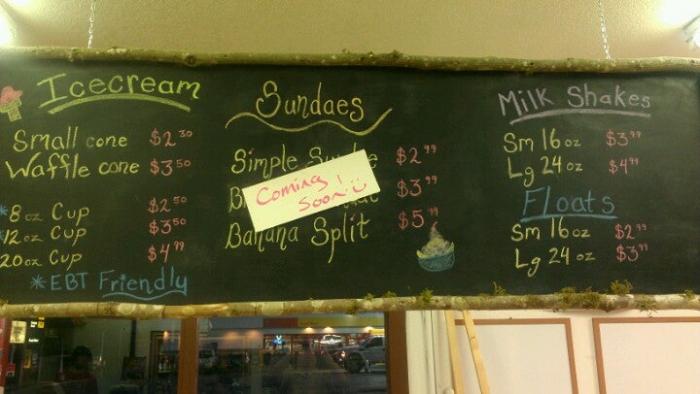 Icecream
Small cone $2.30
Waffle cone $3.50
*8 oz Cup $2.50
*12 oz Cup $3.50
20 oz Cup $4.99
*EBT Friendly
Sundaes
Simple $2.99
$3.99
Banana Split $5.99
Coming
Soon!
Milk Shakes
Sm 16 oz $3.99
Lg 24 oz $4.99
Floats
Sm 16 oz $2.99
Lg 24 oz $3.99